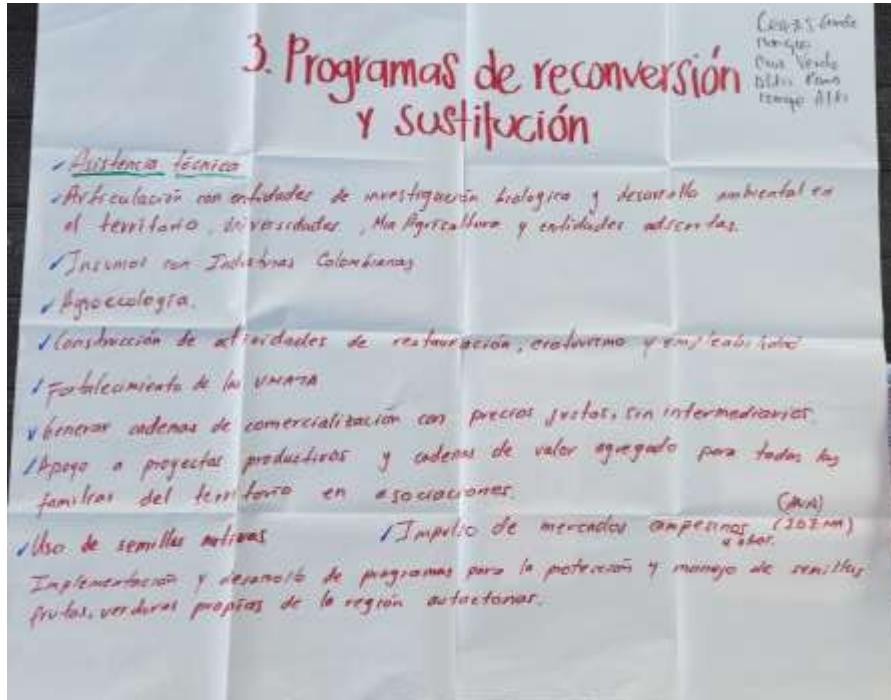 3. Programas de reconversión
y sustitución
Verde
Asistencia técnica
Articulación con entidades de investigación biologica y desarrollo ambiental en
el territorio, universidades, Min Agricultura y entidades adscritas.
Insumos con Industrias Colombianas
Agroecología.
Construcción de actividades de restauración, ecoturismo y empleabilidad
Fortalecimiento de las UMATA
Generar cadenas de comercialización con precios justos, sin intermediarios.
Apoyo a proyectos productivos y cadenas de valor agregado para todas las
familias del territorio en asociaciones.
Uso de semillas nativas
Impulso de mercados campesinos
Implementación y desarrollo de programas para la protección y manejo de semillas
frutas, verduras propias de la región autoctonas.